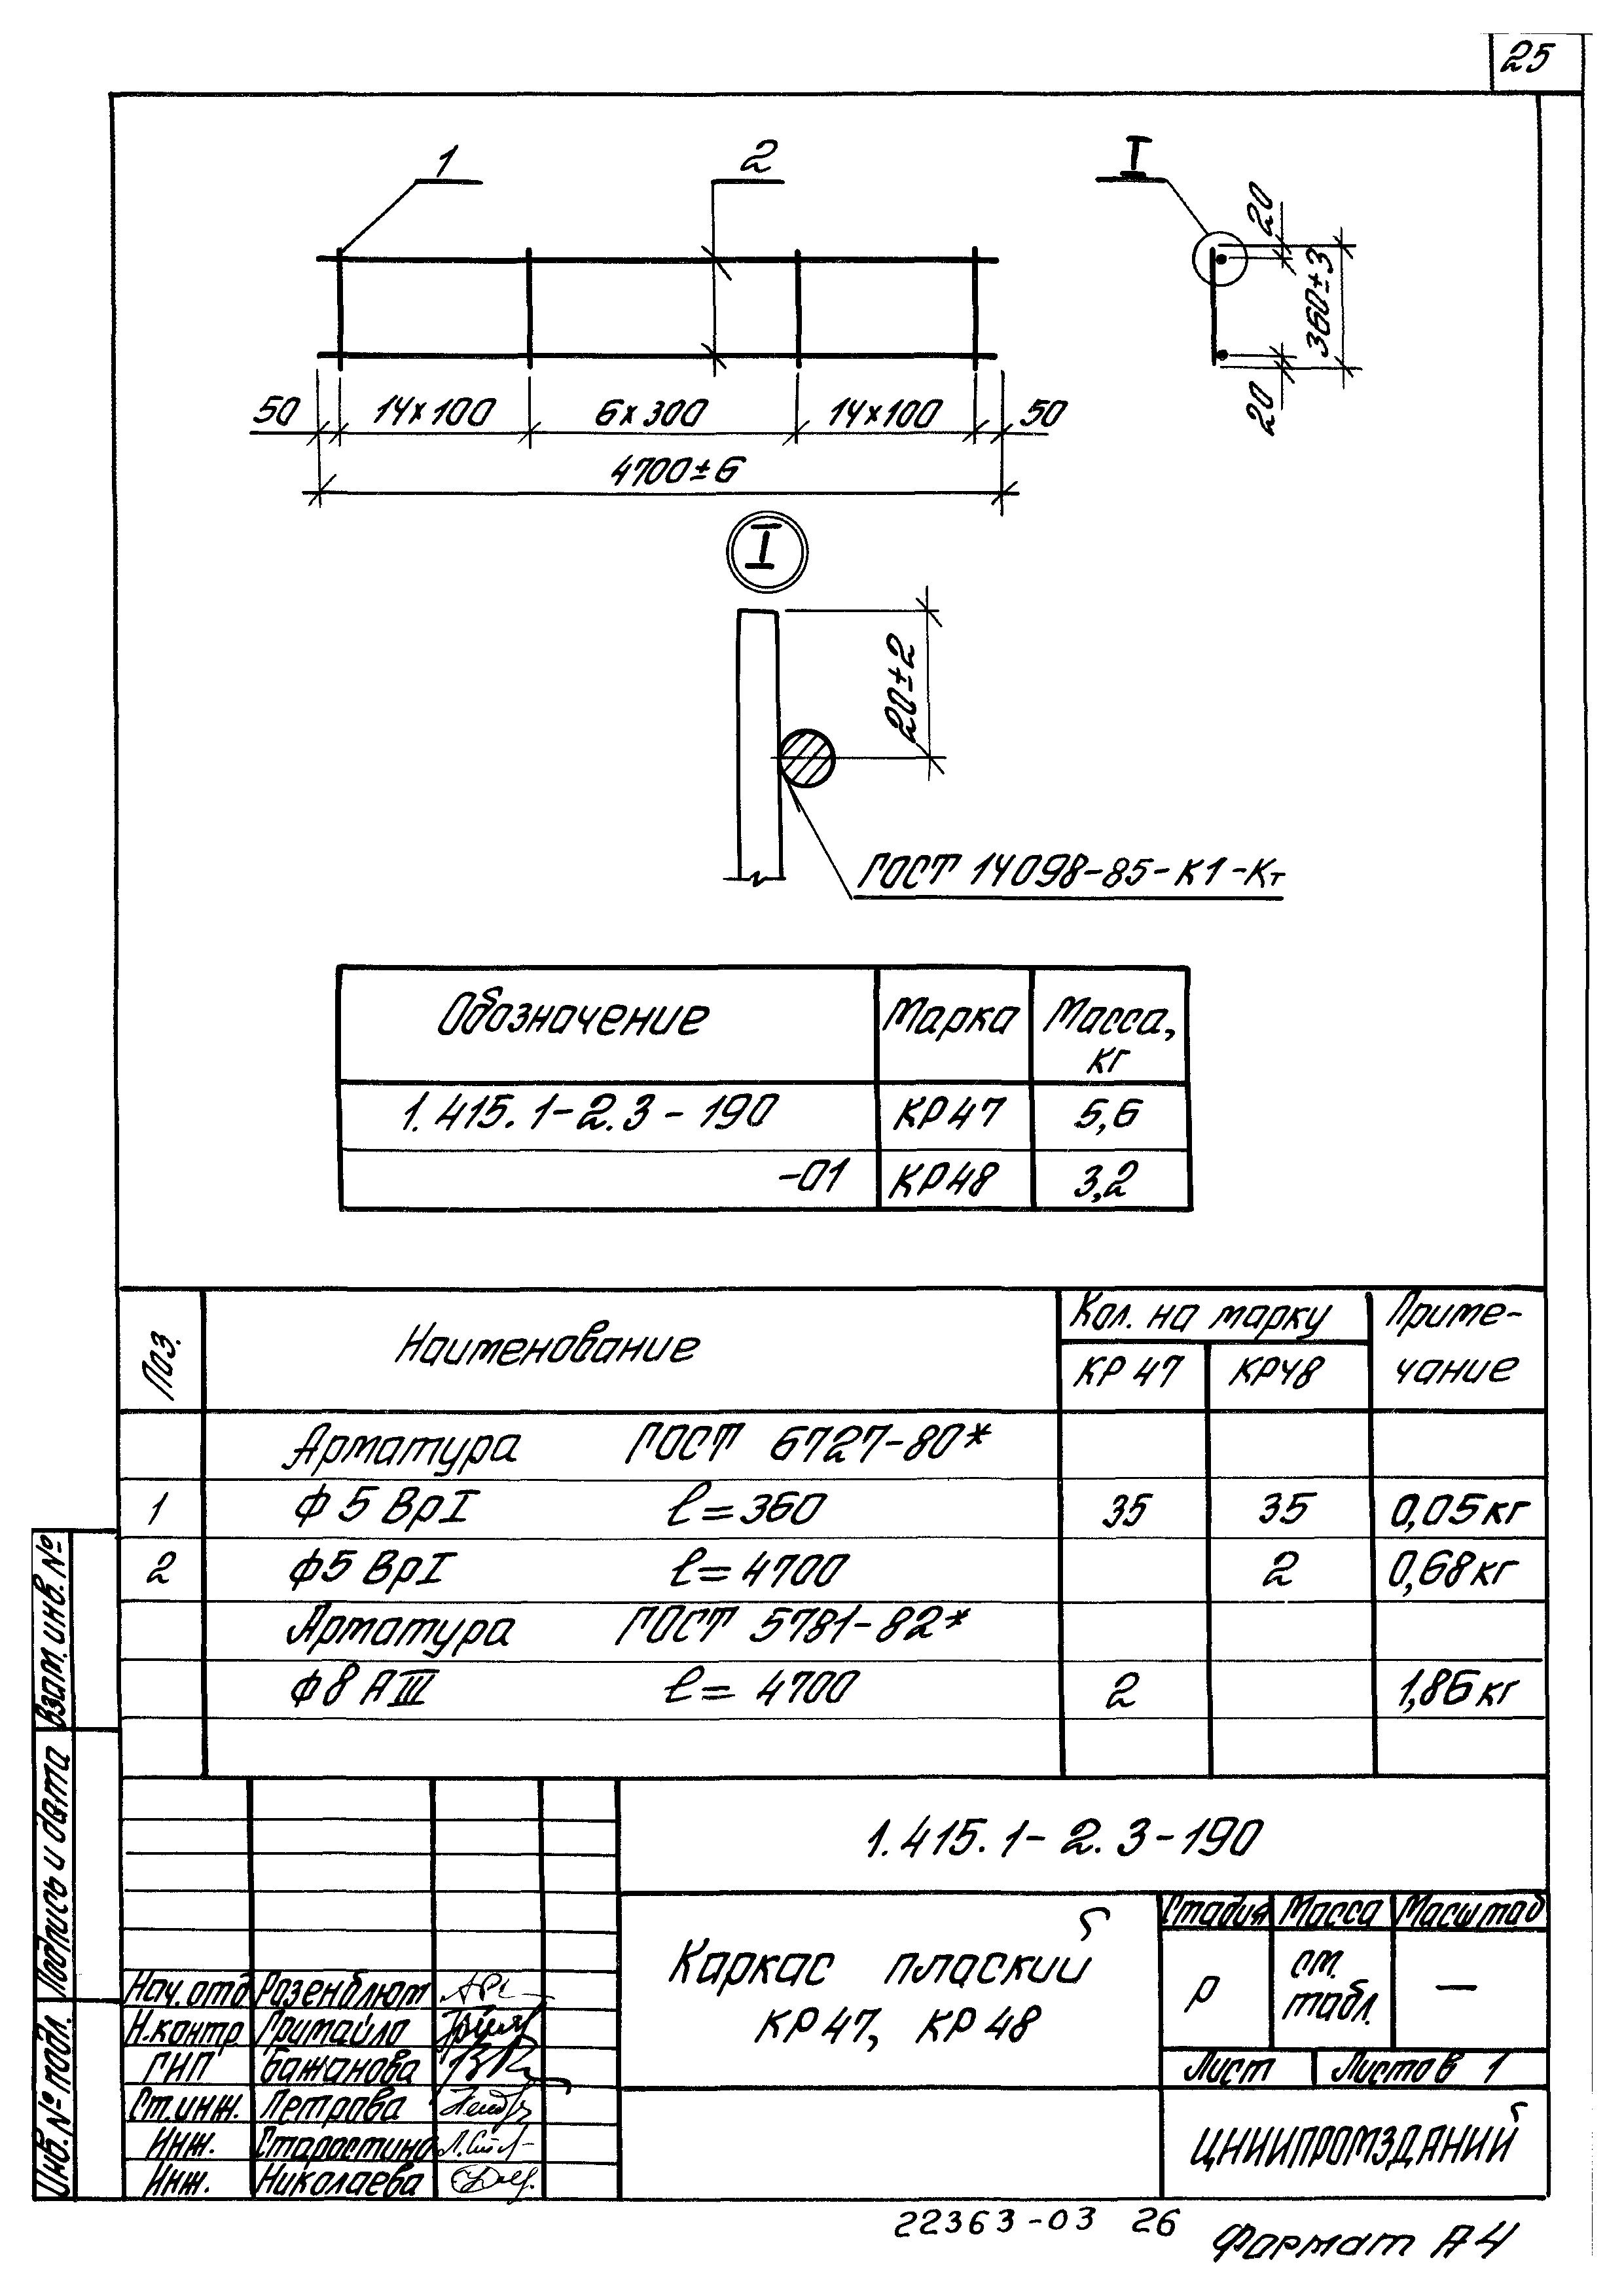 25
1
2
I
20
360±3
20
50 14x100 6x300 14x100 50
4700±6
I
20±2
ГОСТ 14098-85-К1-Кт
Обозначение Марка Масса, кг
1.415.1-2.3-190 КР47 5,6
-01 КР48 3,2
Поз. Наименование Кол. на марку Приме-
КР 47 КР48 чание
Арматура ГОСТ 6727-80*
1 Ф 5 ВрI ℓ=360 35 35 0,05кг
2 Ф5 ВрI ℓ=4700 2 0,68кг
Арматура ГОСТ 5781-82*
Ф8 АIII ℓ= 4700 2 1,86кг
Взам. инв. №
Подпись и дата
Инв. № подл.
1.415.1-2.3-190
Каркас плоский
КР47, КР48
Стадия Масса Масштаб
Р см. табл. —
Лист Листов 1
Нач. отд Розенблют
Н.контр Гритайло
ГИП Бажанова
Ст.инж. Петрова
Инж. Старостина
Инж. Николаева
ЦНИИПРОМЗДАНИЙ
22363-03 26
Формат А4